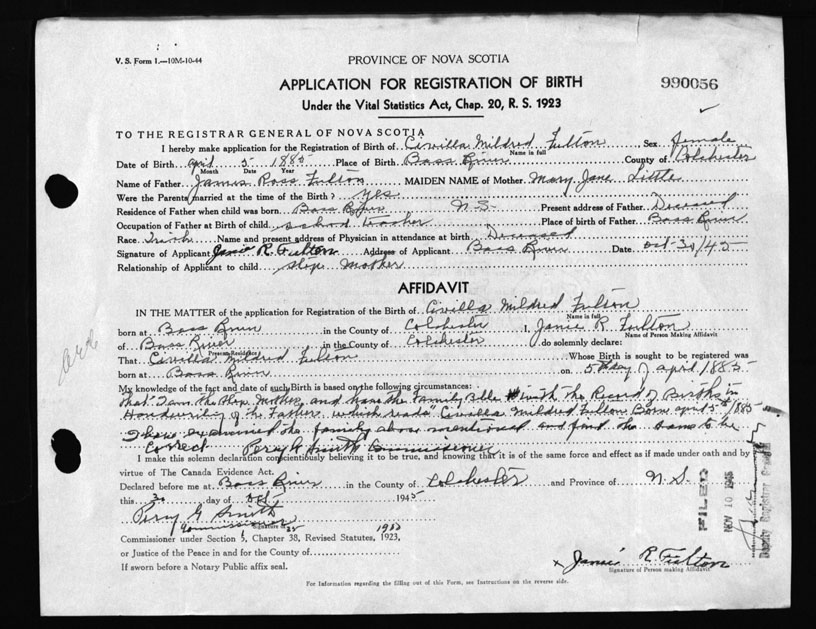 V. S. Form 1.—10M-10-44
PROVINCE OF NOVA SCOTIA
APPLICATION FOR REGISTRATION OF BIRTH
990056
Under the Vital Statistics Act, Chap. 20, R. S. 1923
TO THE REGISTRAR GENERAL OF NOVA SCOTIA
I hereby make application for the Registration of Birth of Civilla Mildred Fulton Sex female
Name in full
Date of Birth April 5 1885 Place of Birth Bass River County of Colchester
Month Date Year
Name of Father James Ross Fulton MAIDEN NAME of Mother Mary Jane Little
Were the Parents married at the time of the Birth? Yes
Residence of Father when child was born Bass River N.S. Present address of Father Deceased
Occupation of Father at Birth of child school teacher Place of birth of Father Bass River
Race Irish Name and present address of Physician in attendance at birth Deceased
Signature of Applicant Janie R. Fulton Address of Applicant Bass River Date Oct 30/45
Relationship of Applicant to child Step Mother
AFFIDAVIT
IN THE MATTER of the application for Registration of the Birth of Civilla Mildred Fulton
Name in full
born at Bass River in the County of Colchester I, Janie R. Fulton
Name of Person Making Affidavit
of Bass River in the County of Colchester do solemnly declare:
Present Residence
That Civilla Mildred Fulton Whose Birth is sought to be registered was
born at Bass River on 5th day of April 1885
My knowledge of the fact and date of such Birth is based on the following circumstances:
that I am the Step Mother, and have the Family Bible with the Record of Births in
Handwriting of the Father, which reads Civilla Mildred Fulton Born April 5th 1885
I have examined the family above mentioned and find the same to be
correct Percy G Smith Commissioner
I make this solemn declaration conscientiously believing it to be true, and knowing that it is of the same force and effect as if made under oath and by
virtue of The Canada Evidence Act.
Declared before me at Bass River in the County of Colchester and Province of N.S.
this 30 day of Oct 1945
Percy G Smith
Commissioner
Signature of
Commissioner under Section 5, Chapter 38, Revised Statutes, 1923,
or Justice of the Peace in and for the County of
If sworn before a Notary Public affix seal.
FILED
NOV 10 1945
Deputy Registrar General
x Janie R. Fulton
Signature of Person making Affidavit
For Information regarding the filling out of this Form, see Instructions on the reverse side.